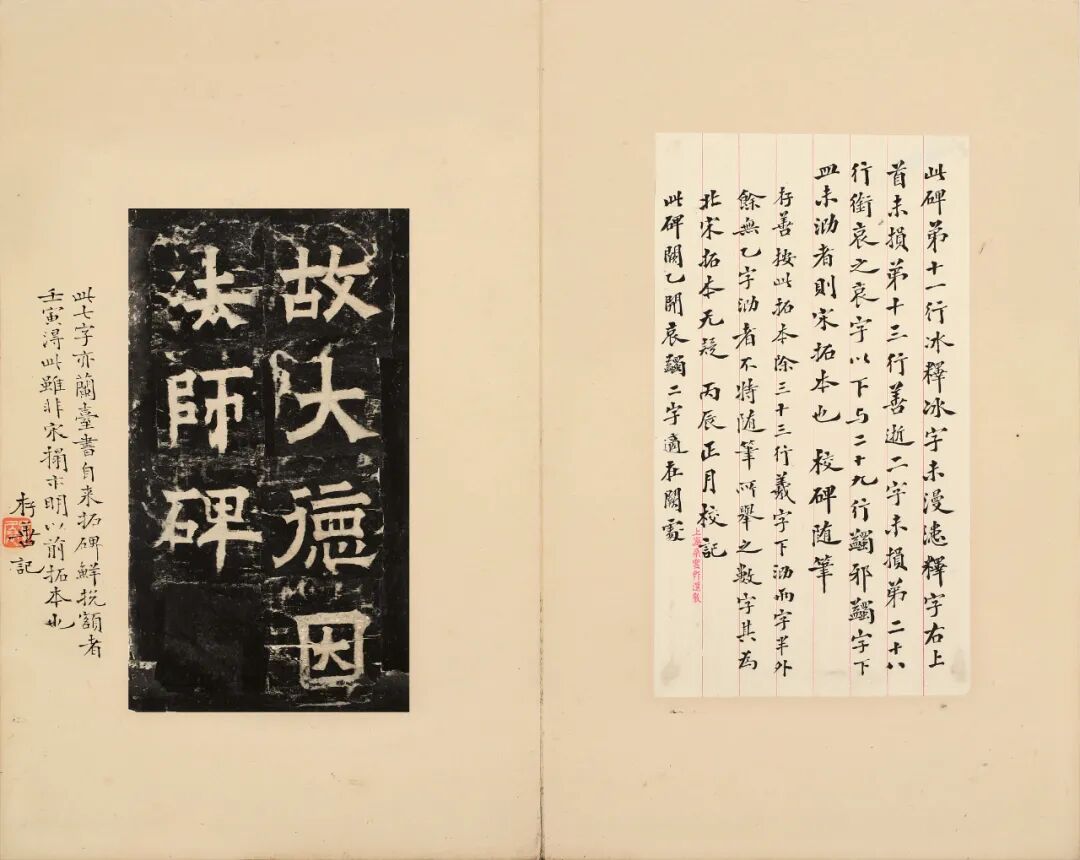 此碑弟十一行冰釋冰字未漫漶釋字右上
首未損弟十三行善逝二字未損弟二十八
行銜哀之哀字以下与二十九行蠲邪蠲字下
皿未泐者則宋拓本也 校碑随筆
存善按此拓本除三十三行羲字下泐而字半外
餘無乙字泐者不特随筆所舉之數字其為
北宋拓本无疑 丙辰正月校記
此碑闕乙開哀蠲二字適在闕處
上海朵雲軒
故大德因
法師碑
此七字亦蘭臺書自来拓碑鮮挩額者
壬寅得此雖非宋搨亦明以前拓本也
存善記